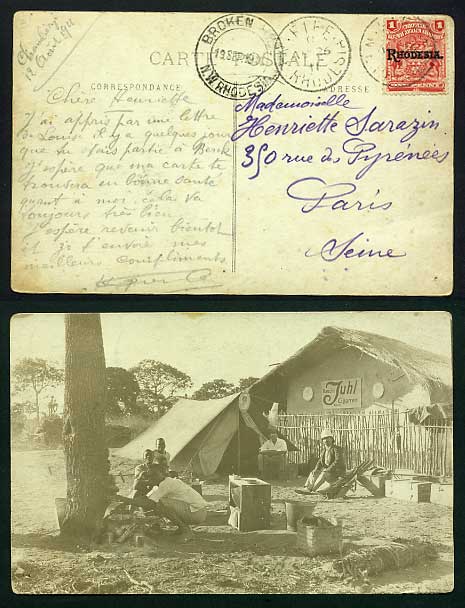 Chambezi
12 Aout 1911
CARTE POSTALE
CORRESPONDANCE
ADRESSE
BROKEN
19 SEP
N.W. RHODESIA
FIFE
RHODES
1
RHODESIA.
Chère Henriette
J'ai appris par une lettre
de Louise il y a quelques jours
que tu étais partie à
J'espère que ma carte te
trouvera en bonne santé
quant à moi, cela va
toujours très bien
J'espère revenir bientôt
et je t'envoie mes
meilleurs compliments
Mademoiselle
Henriette Sarazin
350 rue des Pyrénées
Paris
Seine
Juhl
Cigarren